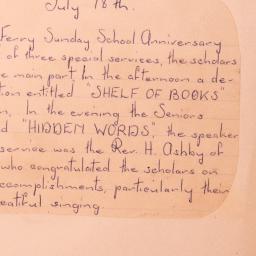 July 18th.
Ferry Sunday School Anniversary
of three special services, the scholars
e main part. In the afternoon a de-
tion entitled "SHELF OF BOOKS"
n, In the evening the Seniors
d "HIDDEN WORDS", the speaker
service was the Rev. H. Ashby of
who congratulated the scholars on
ccomplishments, particularly their
eatiful singing.